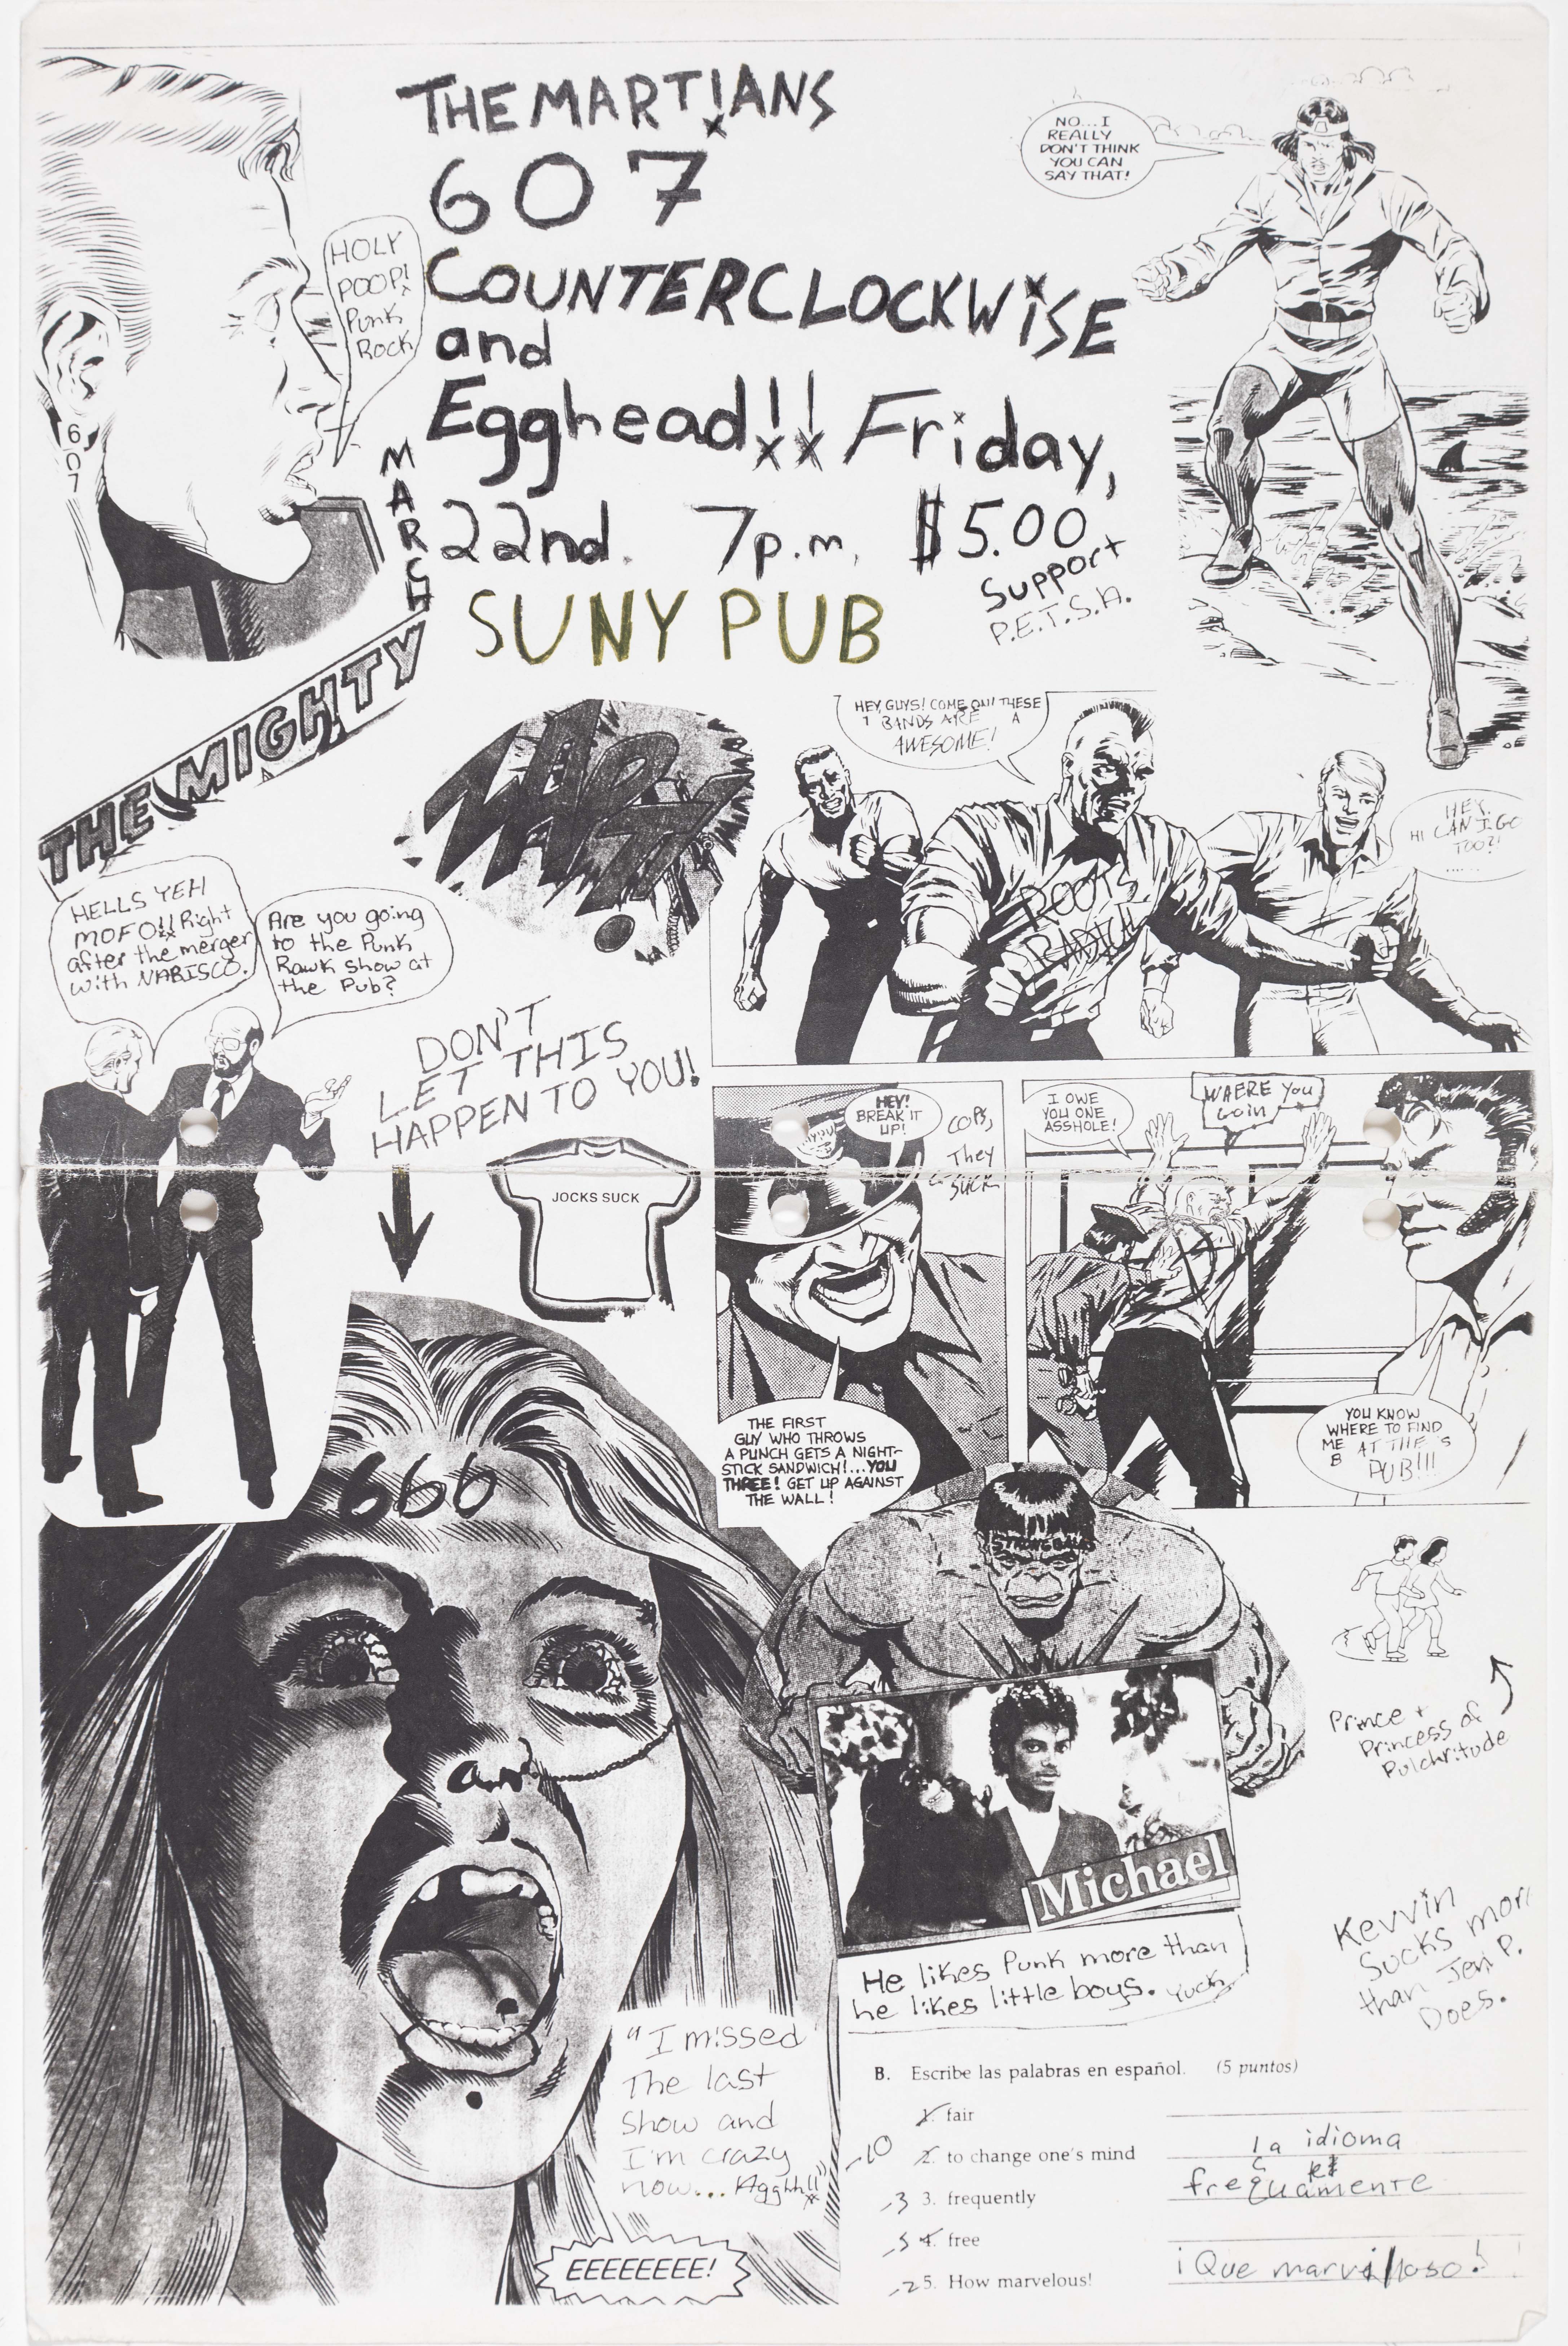 THE MARTIANS
607
COUNTERCLOCKWISE
and
Egghead!! Friday,
MARCH
22nd. 7p.m. $5.00
SUNY PUB
Support
P.E.T.S.A.
HOLY
POOP!
Punk
Rock
607
NO...I
REALLY
DON'T THINK
YOU CAN
SAY THAT!
THE MIGHTY
HEY, GUYS! COME ON! THESE
BANDS ARE A
AWESOME!
ROOTS
RADICAL
HEY,
HI CAN I GO
TOO?!
HELLS YEH
MOFO!! Right
after the merger
with NABISCO.
Are you going
to the Punk
Rawk show at
the Pub?
DON'T
LET THIS
HAPPEN TO YOU!
JOCKS SUCK
HEY!
BREAK IT
UP!
COPS,
They
SUCK
THE FIRST
GUY WHO THROWS
A PUNCH GETS A NIGHT-
STICK SANDWICH!...YOU
THREE! GET UP AGAINST
THE WALL!
I OWE
YOU ONE
ASSHOLE!
WHERE YOU
GOIN
YOU KNOW
WHERE TO FIND
ME AT THE S
B PUB!!!
666
Prince +
Princess of
Pulchritude
Michael
He likes Punk more than
he likes little boys. Yuck
Kevvin
Sucks more
than Jen P.
Does.
"I missed
The last
show and
I'm crazy
now... Agghh!!"
EEEEEEEE!
B. Escribe las palabras en español. (5 puntos)
1. fair
-10 2. to change one's mind la idioma
-3 3. frequently frequamente
-5 4. free
-2 5. How marvelous! ¡Que marvilloso!